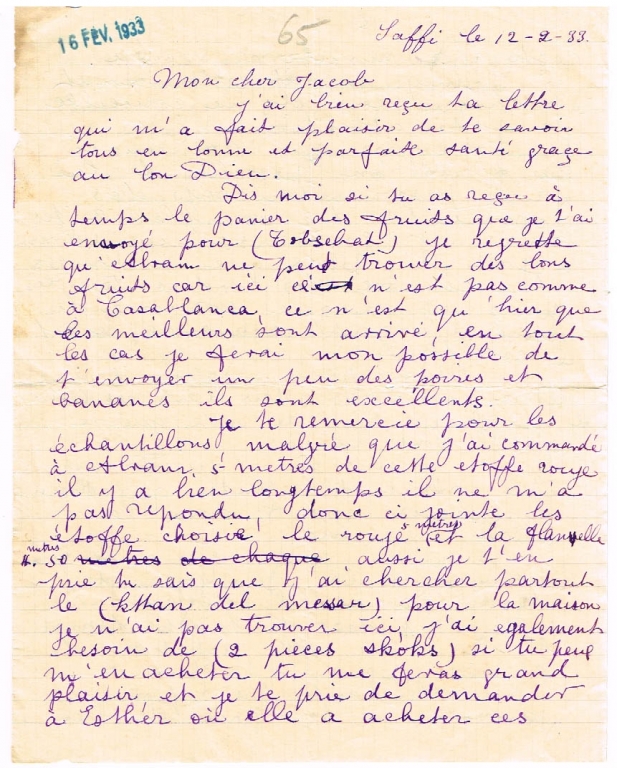 16 FÉV. 1933
65
Saffi le 12-2-33.
Mon cher Jacob
j'ai bien reçu ta lettre
qui m'a fait plaisir de te savoir
tous en bonne et parfaite santé graçe
au bon Dieu.
Dis moi si tu as reçu à
temps le panier des fruits que je t'ai
envoyé pour (Tobschat) je regrette
qu'Abram ne peut trouver des bons
fruits car ici n'est pas comme
à Casablanca, ce n'est qu'hier que
les meilleurs sont arrivé, en tout
les cas je ferai mon possible de
t'envoyer un peu des poires et
bananes ils sont excellents.
Je te remercie pour les
échantillons malgré que j'ai commandé
à Abram 5 metres de cette etoffe rouge
il y a bien longtemps il ne m'a
pas repondu, donc ci jointe les
étoffe choisie le rouge 5 metres et la flanelle
4.50 metres metres de chaque aussi je t'en
prie tu sais que j'ai chercher partout
le (kttan del messar) pour la maison
je n'ai pas trouver ici, j'ai egalement
besoin de (2 pièces skoks) si tu peux
m'en acheter tu me feras grand
plaisir et je te prie de demander
à Esther où elle a acheter ces